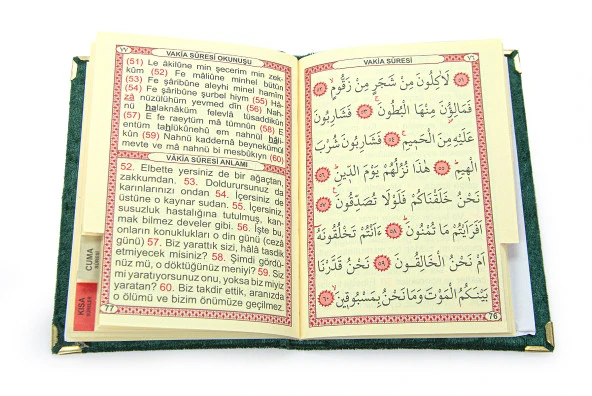 ٧٧
VAKİA SÛRESİ OKUNUŞU
(51) Le âkilûne min şecerim min zek-
kûm (52) Fe mâliûne minhel bütûn
(53) Fe şâribûne aleyhi minel hamîm
(54) Fe şâribûne şurbel hiym (55) Hâ-
zâ nüzülühüm yevmed dîn (56) Nah-
nü halaknâküm felevlâ tüsaddikûn
(57) E fe raeytüm mâ tümnûn (58) E
entüm tahlükûnehû em nahnül hâli-
kûn (59) Nahnü kaddernâ beynekümül
mevte ve mâ nahnü bi mesbûkıyn (60)
VÂKİA SÛRESİ ANLAMI
52. Elbette yersiniz de bir ağaçtan,
zakkumdan. 53. Doldurursunuz da
karınlarınızı ondan 54. İçersiniz de
üstüne o kaynar sudan. 55. İçersiniz,
susuzluk hastalığına tutulmuş, kan-
mak bilmez develer gibi. 56. İşte bu,
onların konuklukları o din günü (ceza
günü) 57. Biz yarattık sizi, hâlâ tasdik
etmiyecek misiniz? 58. Şimdi gördü-
nüz mü, o döktüğünüz meniyi? 59. Siz
mi yaratıyorsunuz onu, yoksa biz miyiz
yaratan? 60. Biz takdir ettik, aranızda
o ölümü ve bizim önümüze geçilmez.
77
CUMA
SÛRESİ
KISA
SÛRELER
VAKIA SÛRESİ
٧٦
لَاٰكِلُونَ مِنْ شَجَرٍ مِنْ زَقُّومٍ ﴿٥٢﴾
فَمَالِؤُ۫نَ مِنْهَا الْبُطُونَ ﴿٥٣﴾ فَشَارِبُونَ
عَلَيْهِ مِنَ الْحَمِيمِ ﴿٥٤﴾ فَشَارِبُونَ شُرْبَ
الْهِيمِ ﴿٥٥﴾ هٰذَا نُزُلُهُمْ يَوْمَ الدِّينِ ﴿٥٦﴾
نَحْنُ خَلَقْنَاكُمْ فَلَوْلَا تُصَدِّقُونَ ﴿٥٧﴾
اَفَرَاَيْتُمْ مَا تُمْنُونَ ﴿٥٨﴾ ءَاَنْتُمْ تَخْلُقُونَهُ
اَمْ نَحْنُ الْخَالِقُونَ ﴿٥٩﴾ نَحْنُ قَدَّرْنَا
بَيْنَكُمُ الْمَوْتَ وَمَا نَحْنُ بِمَسْبُوقِينَ ﴿٦٠﴾
76